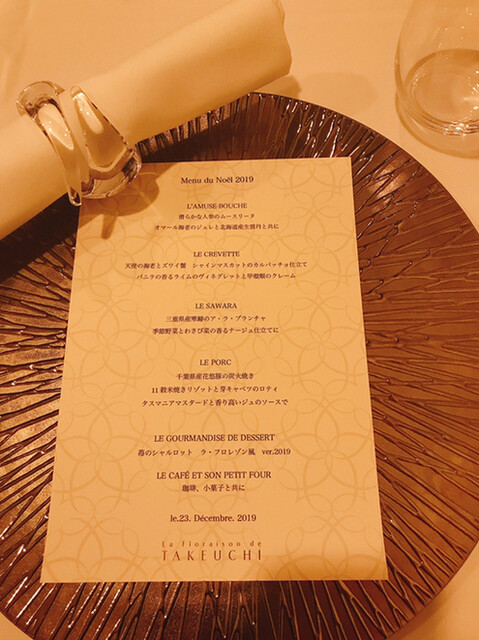 Menu du Noël 2019
L'AMUSE-BOUCHE
滑らかな人参のムースリーヌ
オマール海老のジュレと北海道産生雲丹と共に
LE CREVETTE
天使の海老とズワイ蟹 シャインマスカットのカルパッチョ仕立て
バニラの香るライムのヴィネグレットと甲殻類のクレーム
LE SAWARA
三重県産寒鰆のア・ラ・プランチャ
季節野菜とわさび菜の香るナージュ仕立てに
LE PORC
千葉県産花悠豚の炭火焼き
11穀米焼きリゾットと芽キャベツのロティ
タスマニアマスタードと香り高いジュのソースで
LE GOURMANDISE DE DESSERT
苺のシャルロット ラ・フロレゾン風 ver.2019
LE CAFÉ ET SON PETIT FOUR
珈琲、小菓子と共に
le.23. Décembre. 2019
La floraison de
TAKEUCHI